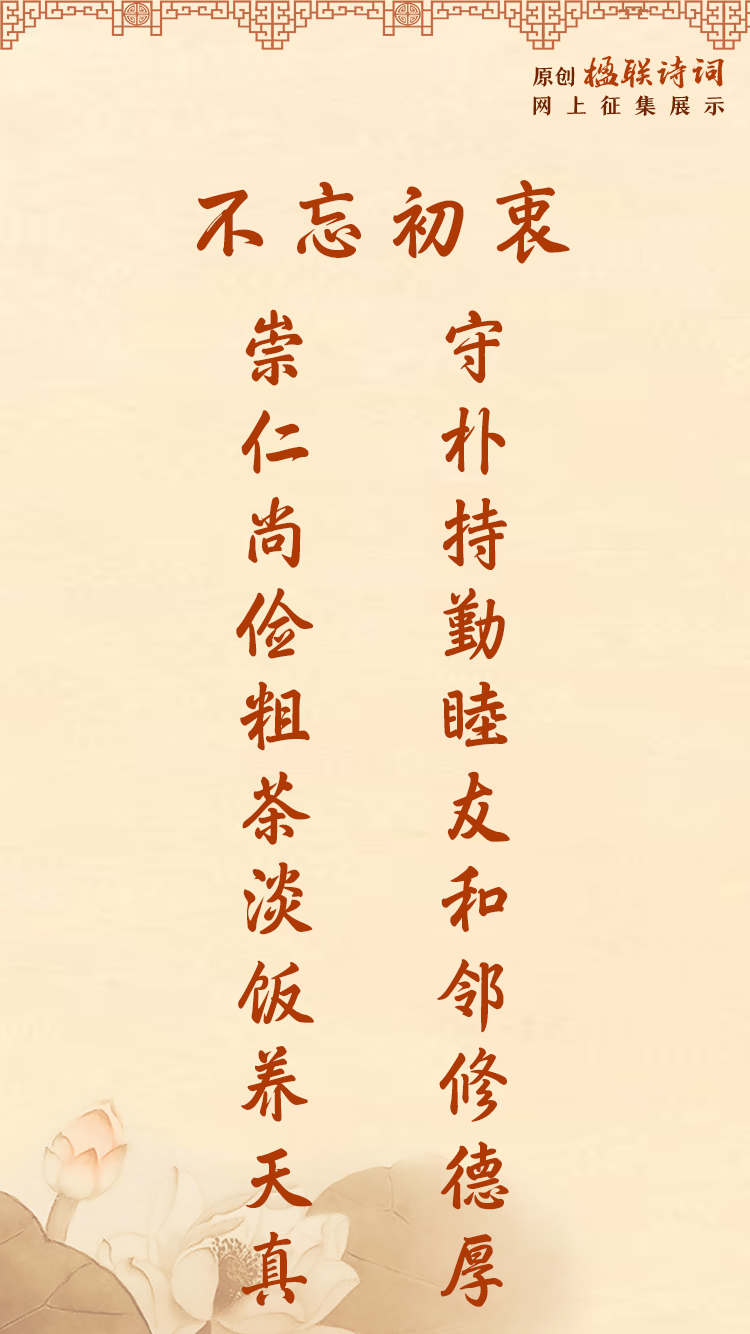 原创 楹联诗词
网上征集展示
不忘初衷
守朴持勤睦友和邻修德厚
崇仁尚俭粗茶淡饭养天真